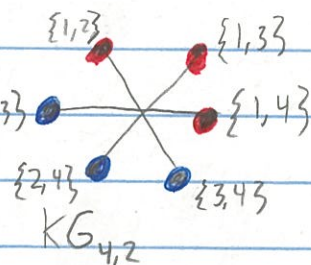 {1,2}
{1,3}
3}
{1,4}
{2,4}
{3,4}
KG4,2